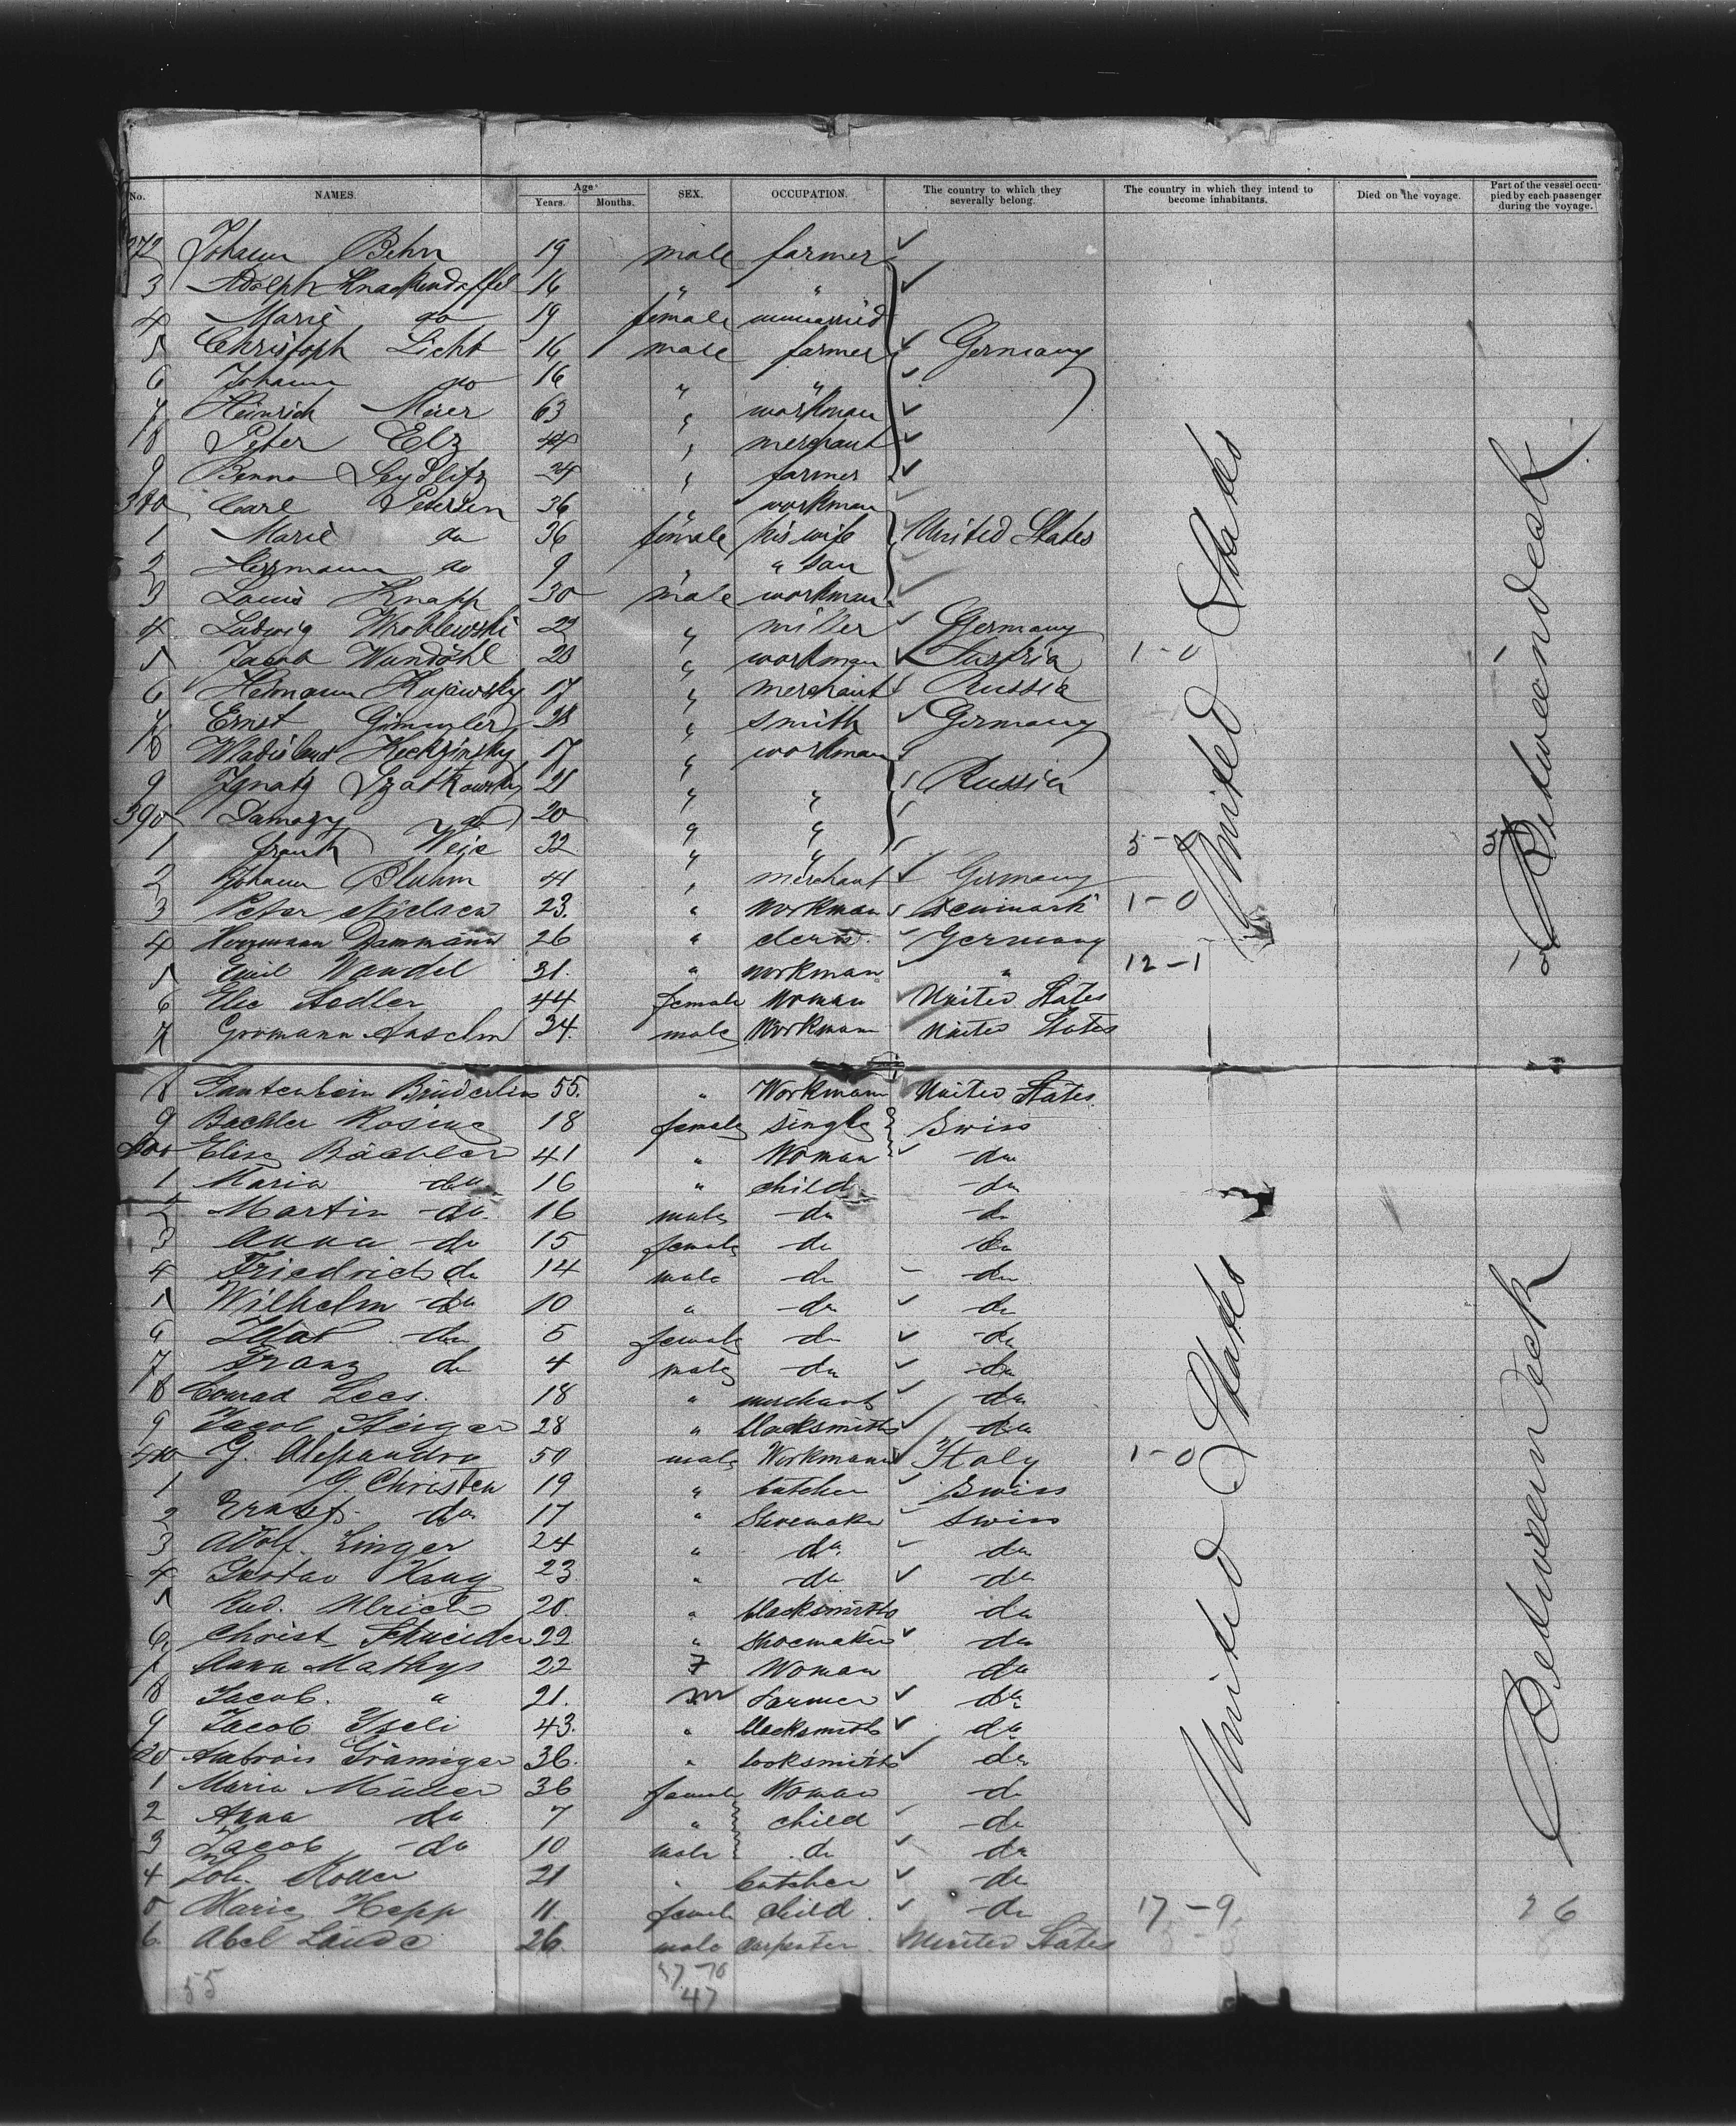 No. NAMES. Age Years. Months. SEX. OCCUPATION. The country to which they severally belong. The country in which they intend to become inhabitants. Died on the voyage. Part of the vessel occupied by each passenger during the voyage.
372 Johann Behn 19 male farmer
3 Adolph 16 " "
4 Marie do 19 female unmarried
5 Christoph Licht 16 male farmer Germany
6 Johann do 16 " "
7 Heinrich Meier 63 " workman
8 Peter Elz 44 " merchant
9 Benno Seydlitz 24 " farmer
380 Carl Petersen 36 " workman
1 Marie do 36 female his wife United States
2 Herrmann do 9 " " son
3 Louis Knapp 30 male workman
4 Ludwig Wroblewski 22 " miller Germany
5 Jacob Wundöhl 28 " workman Austria 1-0 1
6 Hermann Kujawsky 17 " merchant Russia
7 Ernst 28 " smith Germany
8 17 " workman
9 Ignatz 21 " " Russia
390 Damazy do 20 " "
1 Frank Weis 32 " " 5-0 5
2 Johann Bluhm 41 " merchant Germany
3 Peter Nielsen 23. " workman Denmark 1-0
4 Herrmann Dammann 26 " clerk. Germany
5 Emil Wandel 31. " workman " 12-1
6 Else Sedler 44 female Woman United States
7 Gromann Anselm 34. male Workman United States
8 Gantenbein 55. " Workman United States
9 Bachler Rosine 18 female single Swiss
400 Elise Bächler 41 " Woman do
1 Maria do 16 " child do
2 Martin do. 16 male do do
3 Anna do 15 female do do
4 Friedrich do 14 male do do
5 Wilhelm do 10 " do do
6 do 5 female do do
7 Franz do 4 male do do
8 Conrad Lees. 18 " merchant do
9 Jacob Steiger 28 " blacksmith do
410 G. Alessandro 50 male Workman Italy 1-0
1 G. Christen 19 " butcher Swiss
2 Ernst do 17 " Shoemaker Swiss
3 Adolf Zinger 24 " do. do
4 Gustav Haug 23 " do do
5 Rud. Ulrich 20. " blacksmith do
6 Christ. Schneider 22 " Shoemaker do
7 Anna Mathys 22 F Woman do
8 Jacob. " 21. m Farmer do
9 Jacob Iseli 43. " blacksmith do
420 Ambrois Grämiger 36. " locksmith do
1 Maria Müller 36 female Woman do
2 Anna do 7 " child do
3 Jacob do 10 male do do
4 Joh. Koller 21 " butcher do
5 Marie Hepp 11. female child. do 17-9 26
6. Abel Lande 26. male carpenter. United States
United States
United States
Betweendeck
Betweendeck
55
47